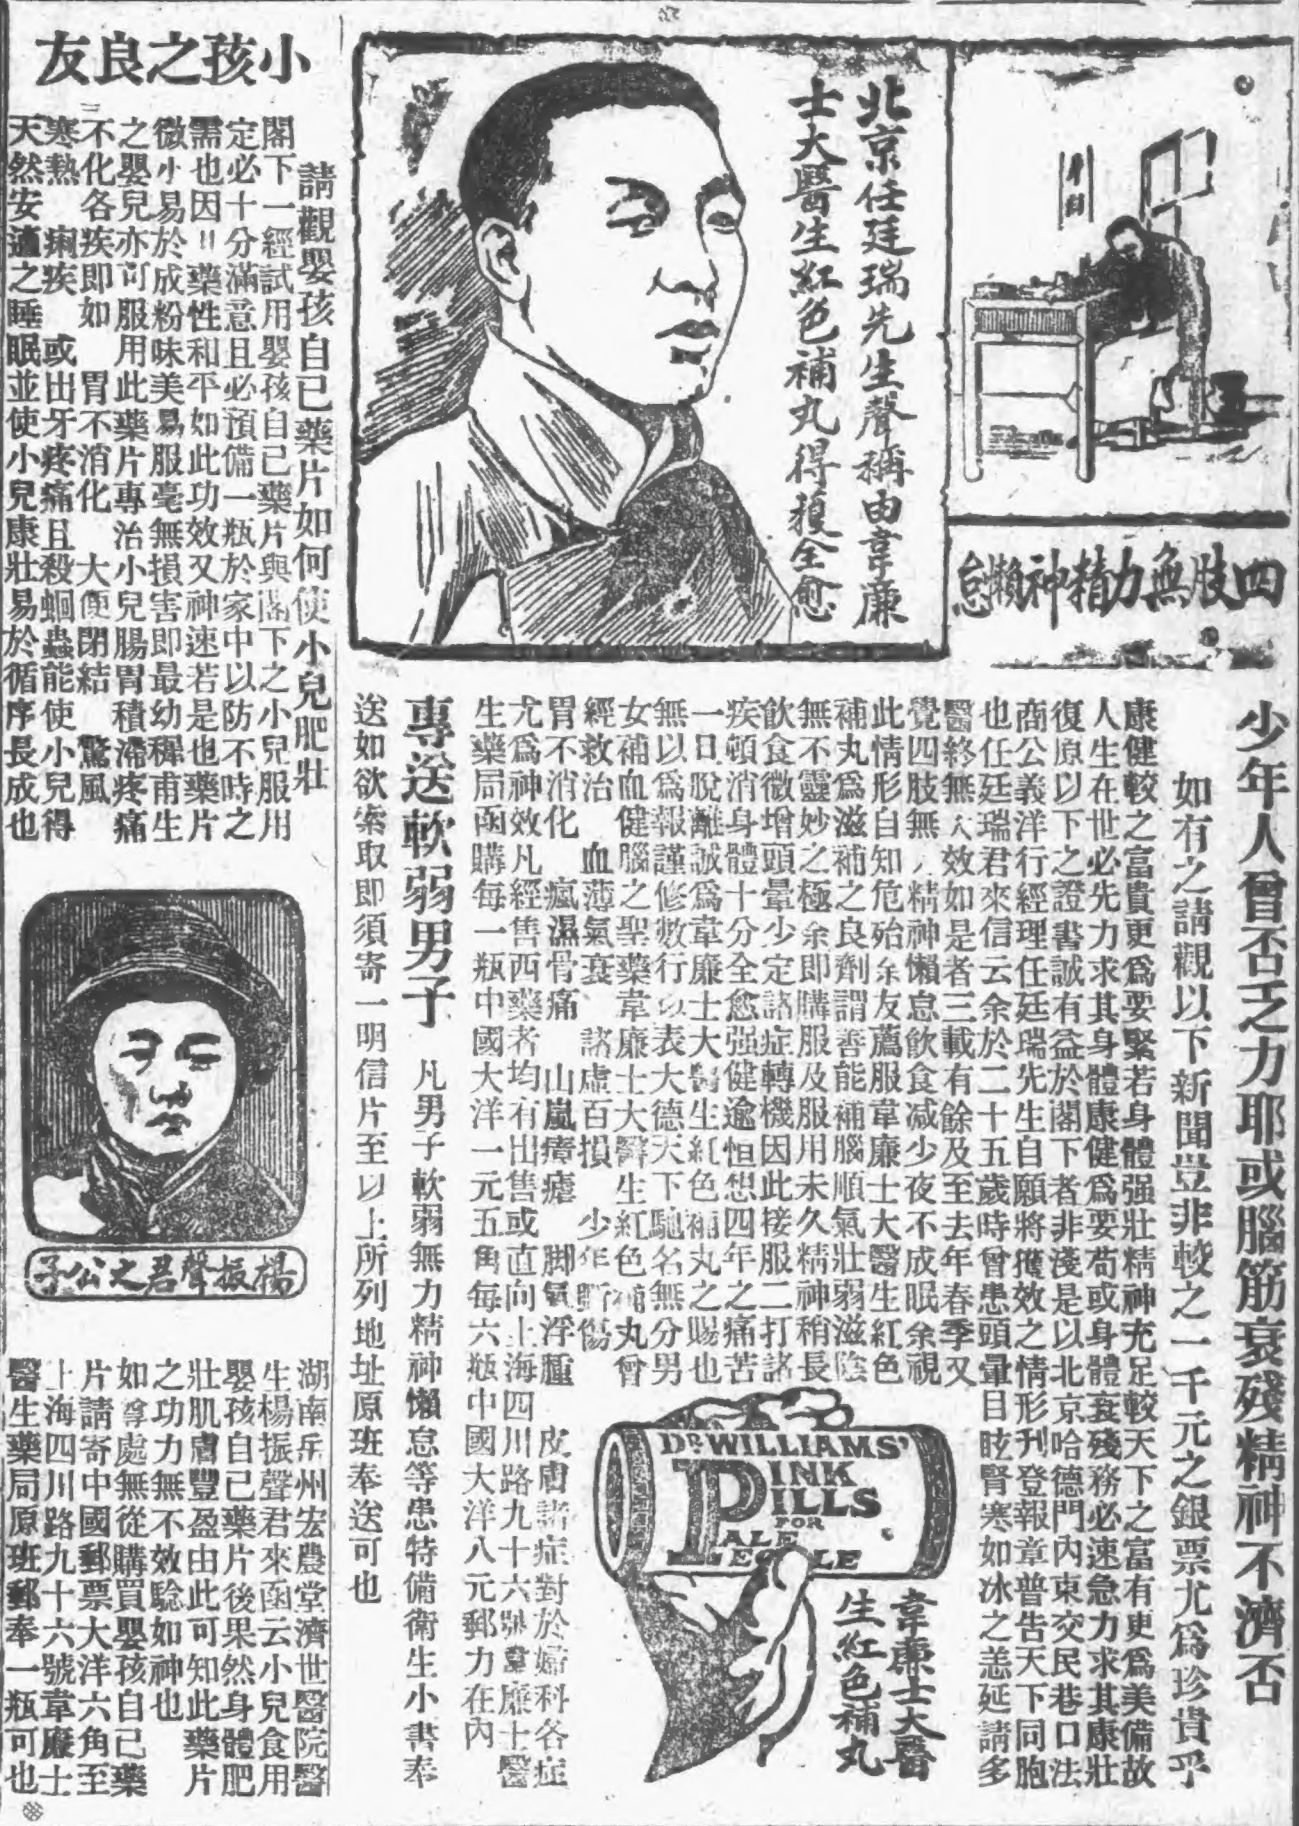 四肢無力精神懶怠
北京任廷瑞先生聲稱由韋廉
士大醫生紅色補丸得獲全愈
少年人曾否乏力耶或腦筋衰殘精神不濟否
如有之請觀以下新聞豈非較之一千元之銀票尤為珍貴乎
康健較之富貴更爲要緊若身體强壯精神充足較天下之富有更爲美備故
人生在世必先力求其身體康健爲要苟或身體衰殘務必速急力求其康壯
復原以下之證書誠有益於閣下者非淺是以北京哈德門內東交民巷口法
商公義洋行經理任廷瑞先生自願將獲效之情形刋登報章普告天下同胞
也任廷瑞君來信云余於二十五歲時曾患頭暈目眩腎寒如冰之恙延請多
醫終無大效如是者三載有餘及至去年春季又
覺四肢無力精神懶怠飲食减少夜不成眠余視
此情形自知危殆余友薦服韋廉士大醫生紅色
補丸爲滋補之良劑謂善能補腦順氣壯弱滋陰
無不靈妙之極余即購服及服用未久精神稍長
飲食微增頭暈少定諸症轉機因此接服二打諸
疾頓消身體十分全愈强健逾恒想四年之痛苦
一旦脫離誠爲韋廉士大醫生紅色補丸之賜也
無以爲報謹修數行以表大德天下馳名無分男
女補血健腦之聖藥韋廉士大醫生紅色補丸曾
經救治 血薄氣衰 諸虛百損 少年斲傷
胃不消化 瘋濕骨痛 山嵐瘴瘧 脚氣浮腫 皮膚諸症對於婦科各症
尤爲神效凡經售西藥者均有出售或直向上海四川路九十六號韋廉士醫
生藥局函購每一瓶中國大洋一元五角每六瓶中國大洋八元郵力在內
DR WILLIAMS'
PINK
PILLS
FOR
PALE
PEOPLE
韋廉士大醫
生紅色補丸
專送軟弱男子 凡男子軟弱無力精神懶怠等患特備衛生小書奉
送如欲索取即須寄一明信片至以上所列地址原班奉送可也
小孩之良友
請觀嬰孩自已藥片如何使小兒肥壯
閣下一經試用嬰孩自已藥片與閣下之小兒服用
定必十分滿意且必預備一瓶於家中以防不時之
需也因 藥性和平如此功效又神速若是也藥片
微小易於成粉味美易服毫無損害即最幼穉甫生
之嬰兒亦可服用此藥片專治小兒腸胃積滯疼痛
不化各疾即如 胃不消化 大便閉結 驚風
寒熱 痢疾 或出牙疼痛且殺蛔蟲能使小兒得
天然安適之睡眠並使小兒康壯易於循序長成也
楊振聲君之公子
湖南岳州宏農堂濟世醫院醫
生楊振聲君來函云小兒食用
嬰孩自已藥片後果然身體肥
壯肌膚豐盈由此可知此藥片
之功力無不效騐如神也
如尊處無從購買嬰孩自已藥
片請寄中國郵票大洋六角至
上海四川路九十六號韋廉士
醫生藥局原班郵奉一瓶可也